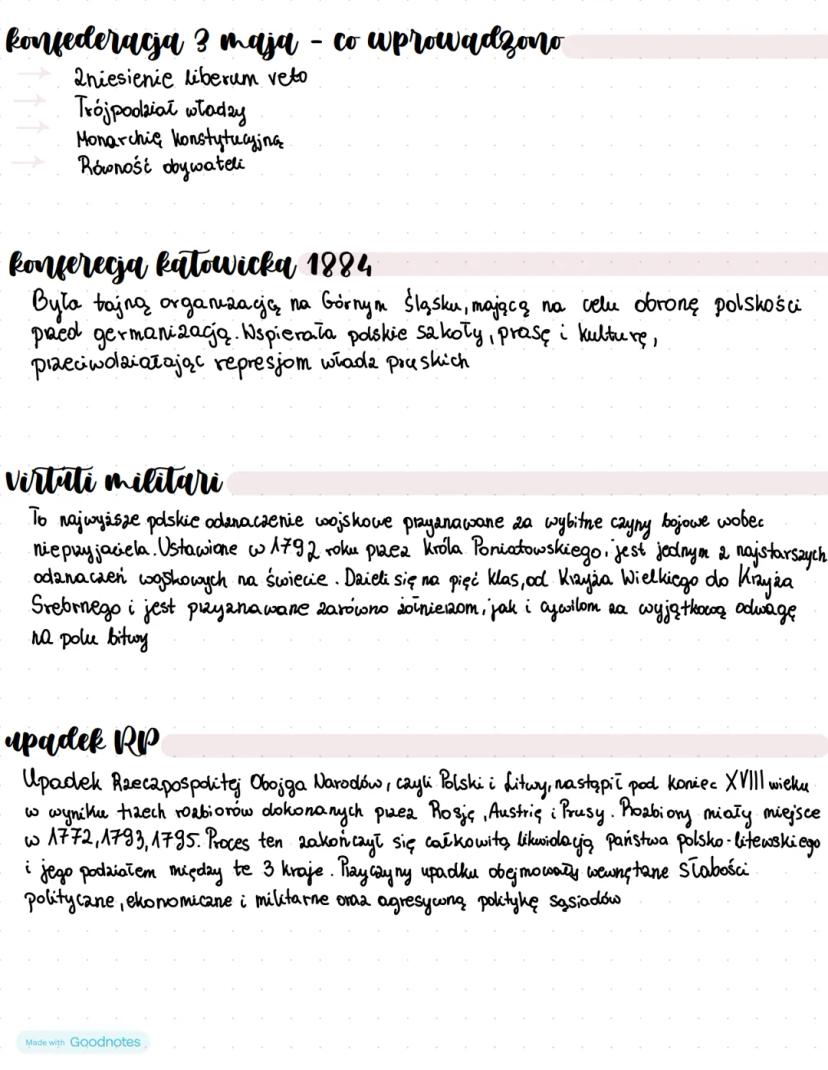 konfederacja 3 maja - co wprowadzono
Zniesienie liberum veto
Trójpodział władzy
Monarchię konstytucyjną
Równość obywateli
konferecja katowicka 1884
Była tajną organizacją na Górnym Śląsku, mającą na celu obronę polskości
przed germanizacją. Wspierała polskie szkoły, prasę i kulturę,
przeciwdziałając represjom władz pruskich
virtuti militari
To najwyższe polskie odznaczenie wojskowe przyznawane za wybitne czyny bojowe wobec
nieprzyjaciela. Ustawione w 1792 roku przez króla Poniatowskiego, jest jednym z najstarszych
odznaczeń wojskowych na świecie. Dzieli się na pięć klas, od Krzyża Wielkiego do Krzyża
Srebrnego i jest przyznawane zarówno żołnierzom, jak i cywilom za wyjątkową odwagę
na polu bitwy
upadek RP
Upadek Rzeczpospolitej Obojga Narodów, czyli Polski i Litwy, nastąpił pod koniec XVIII wieku
w wyniku trzech rozbiorów dokonanych przez Rosję, Austrię i Prusy. Rozbiory miały miejsce
w 1772, 1793, 1795. Proces ten zakończył się całkowitą likwidacją państwa polsko-litewskiego
i jego podziałem między te 3 kraje. Przyczyny upadku obejmowały wewnętrzne słabości
polityczne, ekonomiczne i militarne oraz agresywną politykę sąsiadów
Made with Goodnotes